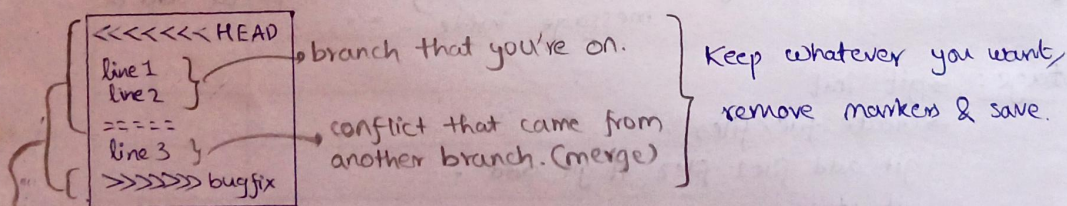 <<<<<<< HEAD
line 1
line 2
=====
line 3
>>>>>>> bugfix
branch that you're on.
conflict that came from
another branch. (merge)
Keep whatever you want,
remove markers & save.